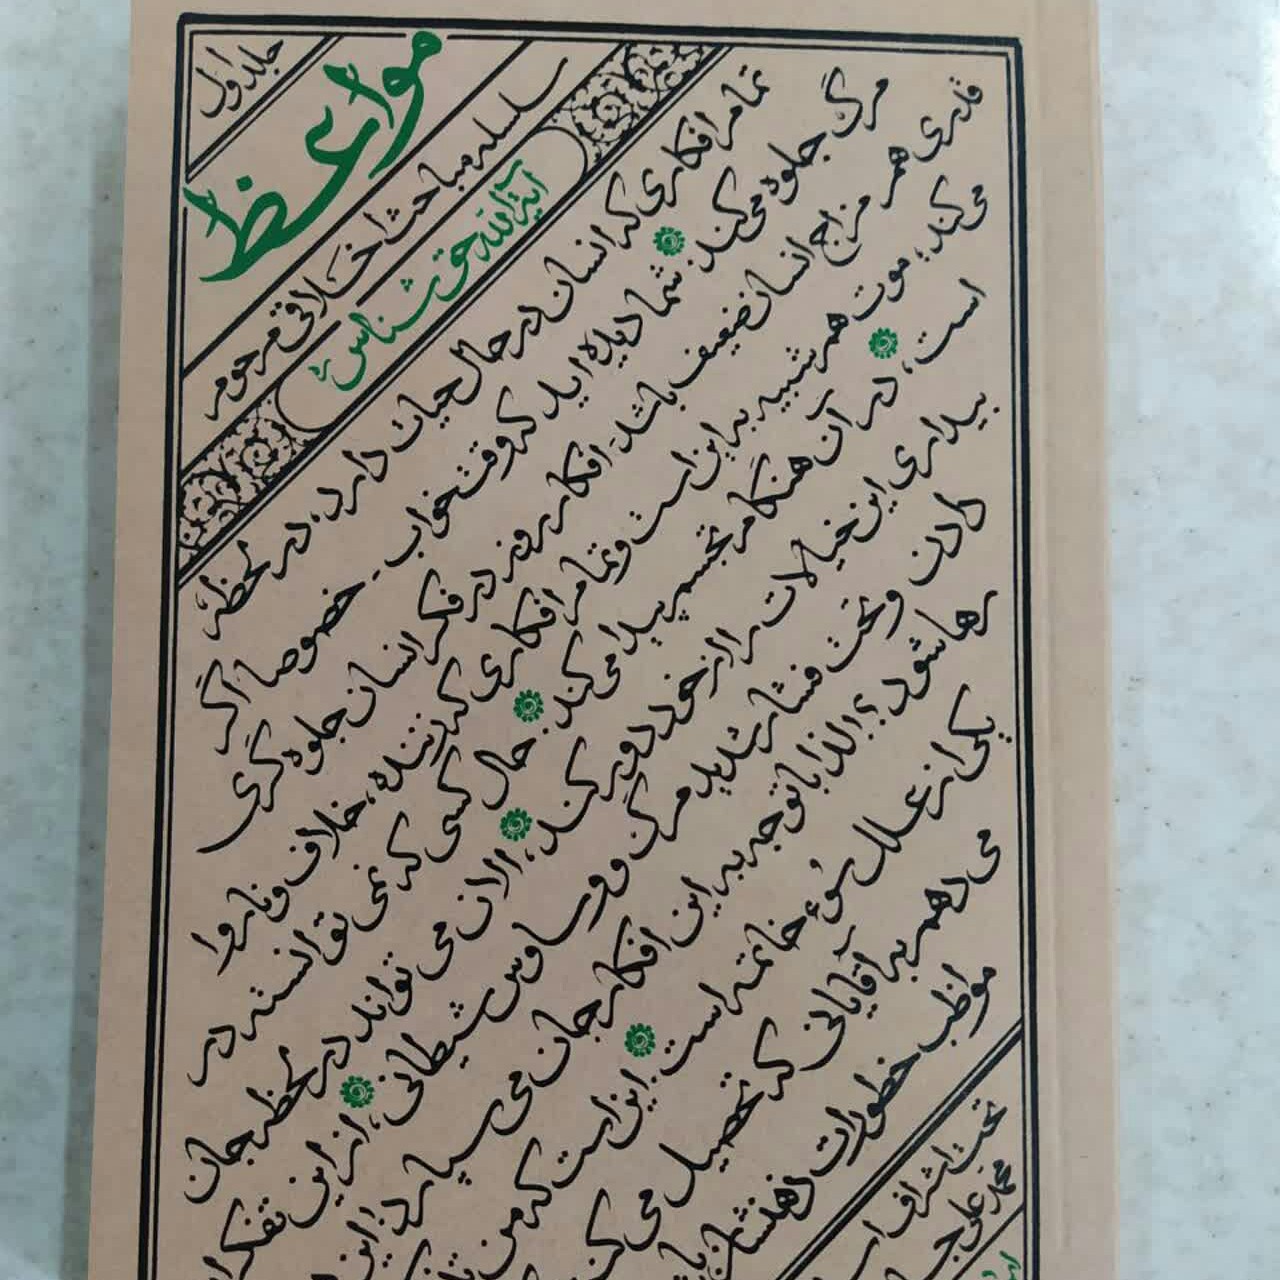 جلد اول
مواعظ
سلسله مباحث اخلاقی مرحوم
آیة الله حق شناس
تمام افکاری که انسان در حال حیات دارد، در لحظهٔ
مرگ جلوه می‌کند. شما دیده‌اید که وقت خواب - خصوصاً اگر
قدری هم مزاج انسان ضعیف باشد - افکار روز در فکر انسان جلوه‌گری
می‌کند، موت هم شبیه به این است و تمام افکاری که تننده، خلاف و ناروا
است، در آن هنگام تجسم پیدا می‌کند. حال کسی که نمی‌توانسته در
بیداری این خیالات را از خود دور کند، الان می‌تواند در لحظه جان
دادن و تحت فشار شدید مرگ و وساوس شیطانی، از این تفکرات
رها شود؟! لذا با توجه به این افکار جان می‌سپارد! این
یکی از علل سوء خاتمه است. این است که من
می‌دهم به آقایانی که تحصیل می‌کنند
مواظب خطورات ذهنشان باشند
تحت اشراف
محمد علی